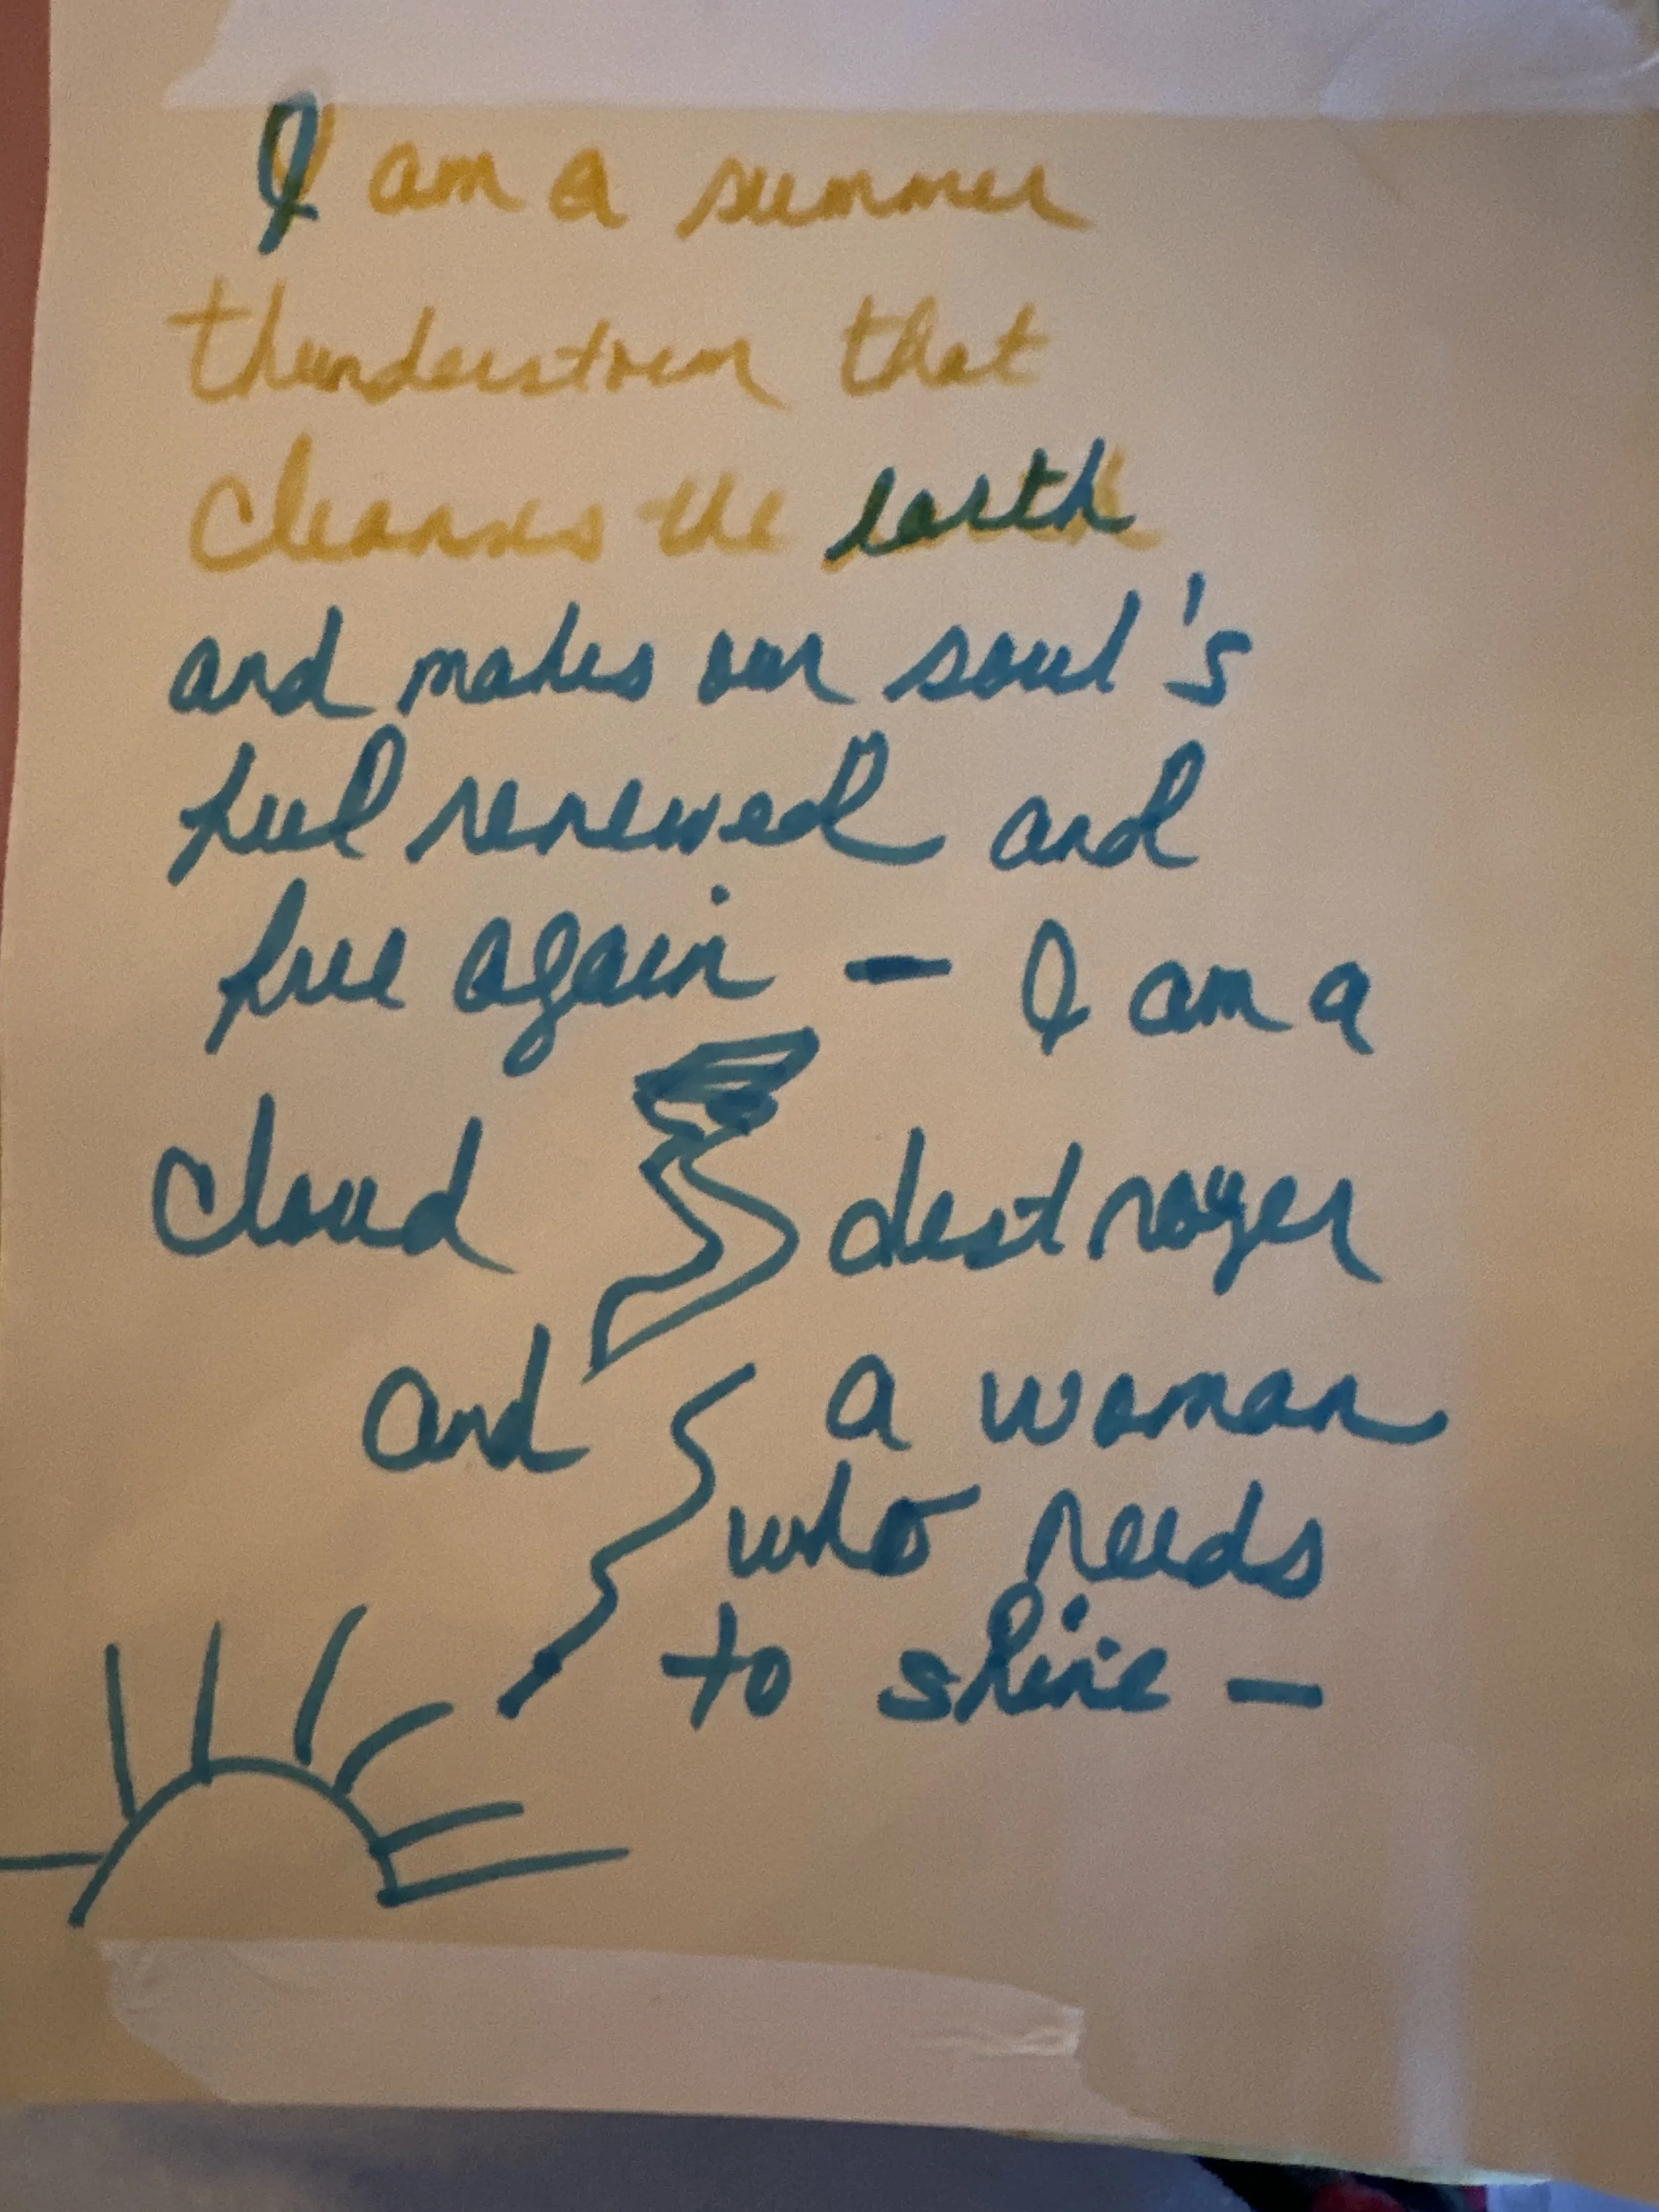 I am a summer
thunderstorm that
cleanses the earth
and makes our soul's
feel renewed and
free again — I am a
cloud destroyer
and a woman
who needs
to shine —